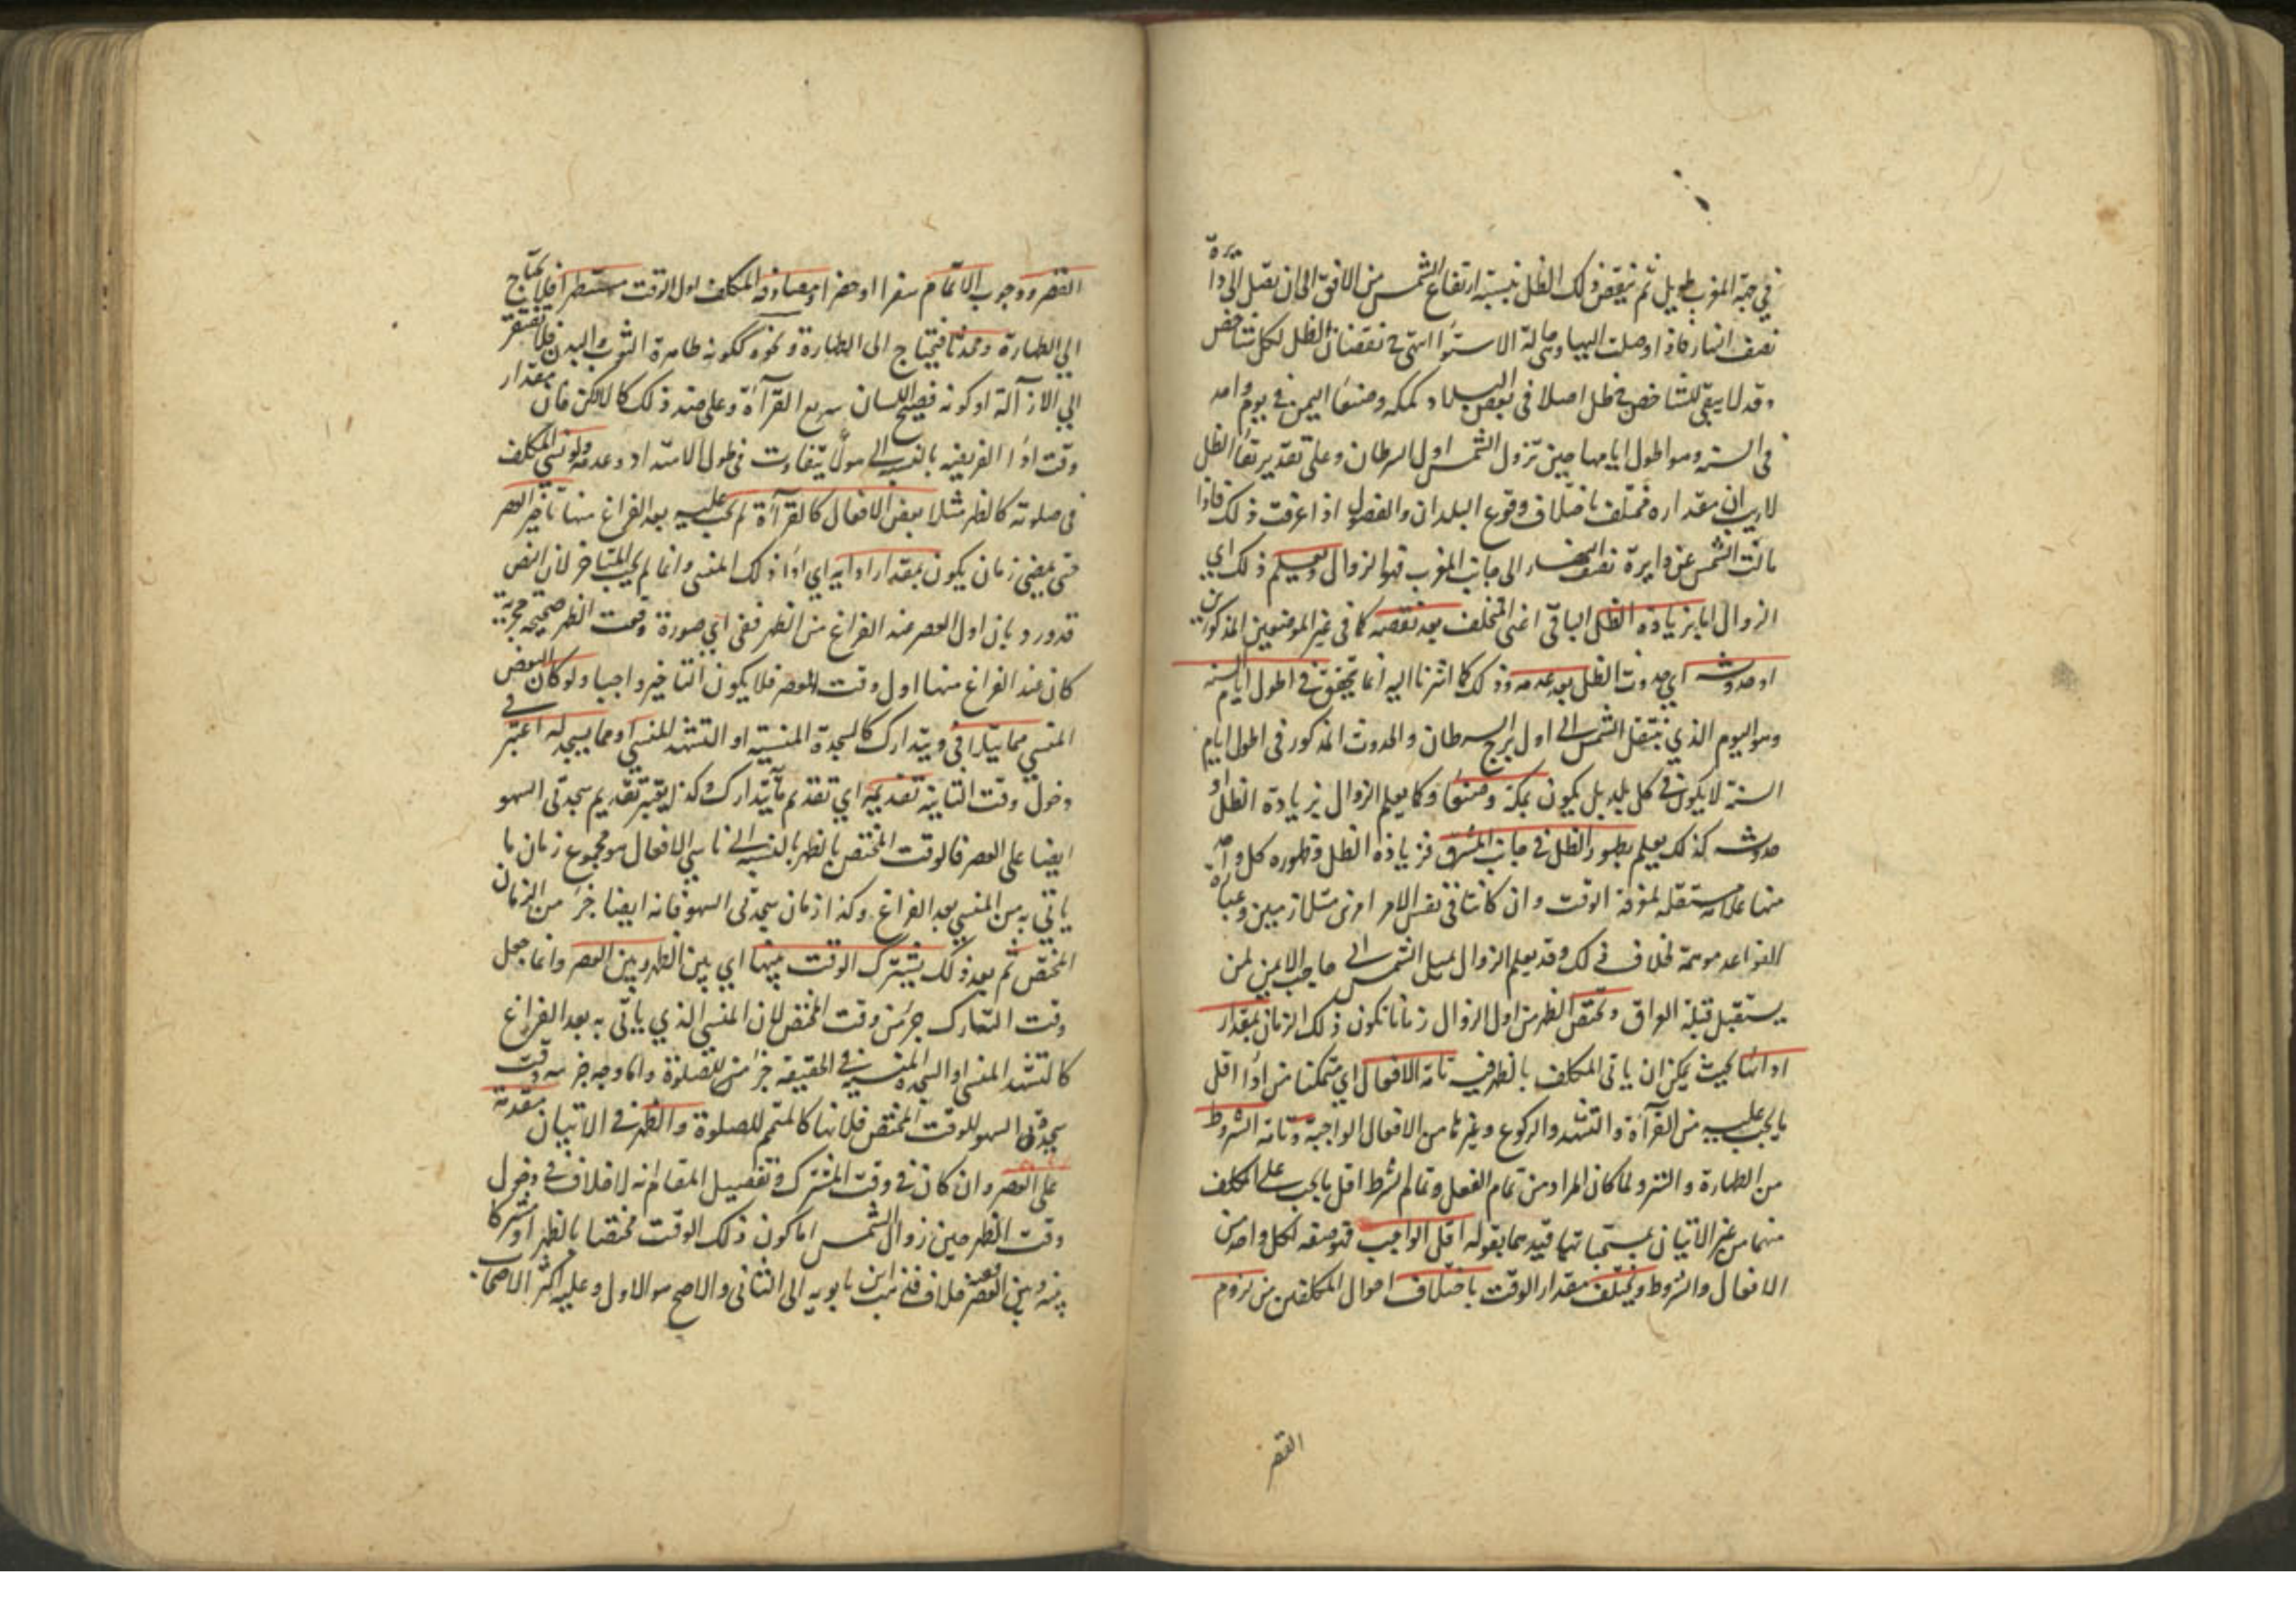 في جهة المغرب طويل ثم ينقص ذلك الظل بنسبة ارتفاع الشمس من الافق الى ان يصل الى دائرة
نصف النهار فاذا وصلت اليها وهي حالة الاستواء انتهى نقصان الظل لكل شاخص
وقد لا يبقى للشاخص ظل اصلا في بعض البلاد كمكه وصنعا اليمن في يوم واحد
في السنه وهو اطول ايامها حين نزول الشمس اول السرطان وعلى تقدير بقاء الظل
لا ريب ان مقداره مختلف باختلاف وقوع البلدان والفصول اذا عرفت ذلك فاذا
مالت الشمس عن دايرة نصف النهار الى جانب المغرب فهو الزوال ويعلم ذلك اي
الزوال اما بزيادة الظل الباقي اعني المتخلف بعد نقصه كما في غير الموضعين المذكورين
او حدوثه اي حدوث الظل بعد عدمه وذلك كما اشرنا اليه انما يتحقق في اطول ايام السنه
وهو اليوم الذي ينتقل الشمس الى اول برج السرطان والحدوث المذكور في اطول ايام
السنة لا يكون في كل بلد بل يكون بمكة وصنعا وكما يعلم الزوال بزيادة الظل او
حدوثه كذلك يعلم بظهور الظل في جانب المشرق فزيادة الظل وظهوره كل واحد
منها علامة مستقله لمعرفة الوقت وان كانتا في نفس الامر امرين متلازمين وعبارة
القواعد موهمة لخلاف ذلك وقد يعلم الزوال بميل الشمس الى حاجب الايمن لمن
يستقبل قبلة العراق ويختص الظهر من اول الزوال زمانا يكون ذلك الزمان بمقدار
ادائها بحيث يمكن ان ياتي المكلف بالظهر فيه تامة الافعال اي متمكنا من اداء اقل
ما يجب عليه من القرآءة والتشهد والركوع وغيرها من الافعال الواجبة وتامة الشروط
من الطهارة والستر ولما كان المراد من تمام الفعل وتمام الشرط اقل ما يجب على المكلف
منهما من غير الاتيان بمستحباتها قيدهما بقوله اقل الواجب فهو صفه لكل واحد من
الافعال والشروط ويختلف مقدار الوقت باختلاف احوال المكلفين من لزوم
القصر
القصر ووجوب الاتمام سفرا او حضرا ومصادفة المكلف اول الوقت متطهرا فلا يحتاج
الى الطهارة ومحدثا فيحتاج الى الطهارة ونحوه ككونه طاهرة الثوب والبدن فلا يفتقر
الى الازآلة او كونه فصيح اللسان سريع القرآءة وعلى ضد ذلك كالالكن فان مقدار
وقت اداء الفريضه بالنسبة الى هولاء يتفاوت في طول الامتداد وعدمه ولو نسي المكلف
في صلوته كالظهر مثلا بعض الافعال كالقرآءة لم يجب عليه بعد الفراغ منها تاخير العصر
حتى يمضي زمان يكون بمقدار ادايه اي اداء ذلك المنسي وانما لم يجب التاخر لان النص
قد ورد بان اول العصر عند الفراغ من الظهر ففي اي صورة وقعت الظهر صحيحة مجزية
كان عند الفراغ منها اول وقت العصر فلا يكون التاخير واجبا ولو كان البعض
المنسي مما يتلافى ويتدارك كالسجدة المنسية او التشهد المنسي او مما يسجد له اعتبر في
دخول وقت الثانية تقديمه اي تقدم ما يتدارك وكذا يعتبر تقديم سجدتي السهو
ايضا على العصر فالوقت المختص بالظهر بالنسبة الى ناسي الافعال هو مجموع زمان ما
ياتي به من المنسي بعد الفراغ وكذا زمان سجدتي السهو فانه ايضا جزء من الزمان
المختص ثم بعد ذلك يشترك الوقت بينهما اي بين الظهر وبين العصر وانما جعل
وقت التدارك جزء من وقت المختص لان المنسي الذي ياتي به بعد الفراغ
كالتشهد المنسي او السجدة المنسيه في الحقيقة جزء من الصلوة واما وجه جزئيه وقت
سجدتي السهو للوقت المختص فلانها كالمتمم للصلوة والظهر في الاتيان مقدمة
على العصر وان كان في وقت المشترك وتفصيل المقام انه لا خلاف في دخول
وقت الظهر حين زوال الشمس اما كون ذلك الوقت مختصا بالظهر او مشتركا
بينه وبين العصر فمحل خلاف فذهب ابن بابويه الى الثاني والاصح هو الاول وعليه اكثر الاصحاب